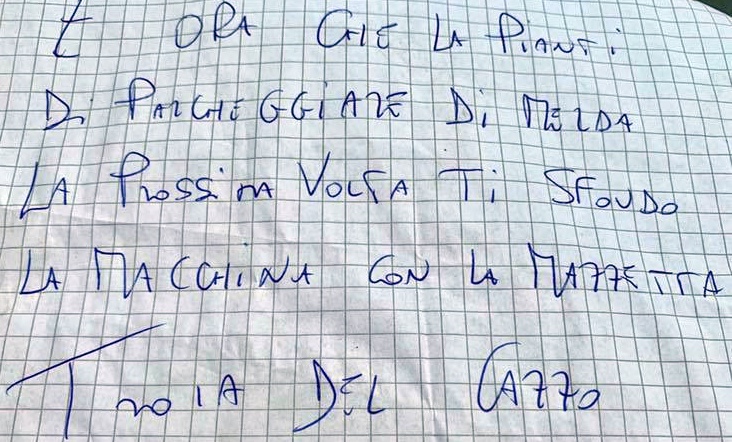 E ORA CHE LA PIANTI
DI PARCHEGGIARE DI MERDA
LA PROSSIMA VOLTA TI SFONDO
LA MACCHINA CON LA MAZZETTA
TROIA DEL CAZZO